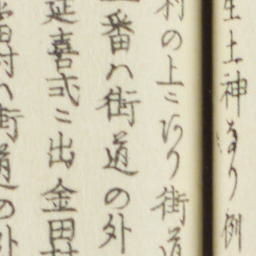 生土神なり例
村の上ミにあり街道
番ハ街道の外
延喜式ニ出金田村
村ハ街道の外